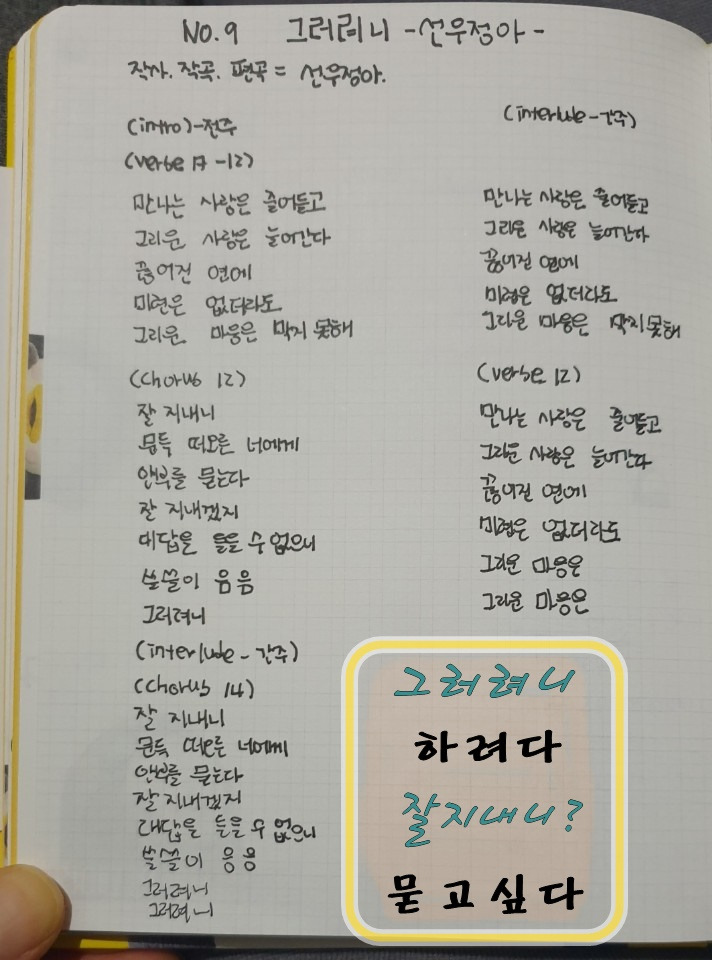 NO.9 그러려니 -선우정아-
작사. 작곡. 편곡 = 선우정아.
(intro)-전주
(verse A -12)
만나는 사람은 줄어들고
그리운 사람은 늘어간다
끊어진 연에
미련은 없더라도
그리운 마음은 막지 못해
(chorus 12)
잘 지내니
문득 떠오른 너에게
안부를 묻는다
잘 지내겠지
대답을 들을 수 없으니
쓸쓸이 음음
그러려니
(interlude - 간주)
(chorus 14)
잘 지내니
문득 떠오른 너에게
안부를 묻는다
잘 지내겠지
대답을 들을 수 없으니
쓸쓸이 응응
그러려니
그러려니
(interlude - 간주)
만나는 사람은 줄어들고
그리운 사람은 늘어간다
끊어진 연에
미련은 없더라도
그리운 마음은 막지 못해
(verse 12)
만나는 사람은 줄어들고
그리운 사람은 늘어간다
끊어진 연에
미련은 없더라도
그리운 마음은
그리운 마음은
그러려니
하려다
잘지내니?
묻고싶다